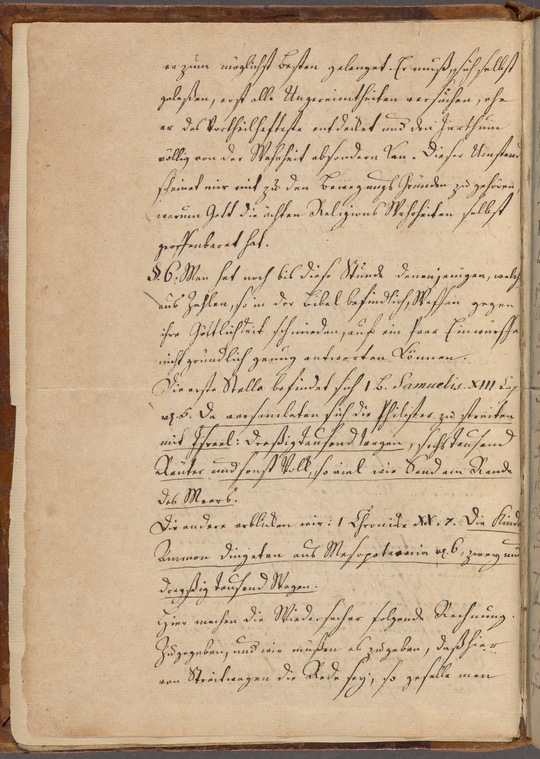 er zum möglichst Besten gelanget. Er muß, sich selbst
gelaßen, erst alle Ungereimtheiten versuchen, ehe
er das Vortheilhafteste entdecket und den Irrthum
völlig von der Wahrheit absondern kan. Dieser Umstand
scheinet mir mit zu den Bewegungs Gründen zu gehören,
warum Gott die ächten Religions Wahrheiten selbst
geoffenbaret hat.
§ 6. Man hat noch bis diese Stunde denenjenigen, welche
aus Zahlen, so in der Bibel befindlich, Waffen gegen
ihre Göttlichkeit schmieden, auf ein paar Einwürffe
nicht gründlich genug antworten können.
Die erste Stelle befindet sich 1 B. Samuelis. XIII Cap
vs. 5. Da versamleten sich die Philister, zu streiten
mit Israel: Dreißig tausend wagen, sechs tausend
Reuter und sonst Volk, so viel wie Sand am Rande
des Meers.
Die andere erblicken wir: 1 Chronick. XX. 7. Die Kinder
Ammon dingeten aus Mesopotamia vs. 6, zwey und
dreyßig tausend Wagen.
Hier machen die Wiedersacher folgende Rechnung.
Zugegeben, und wir müßen es zugeben, daß hier
von Streitwagen die Rede sey, so geselle man